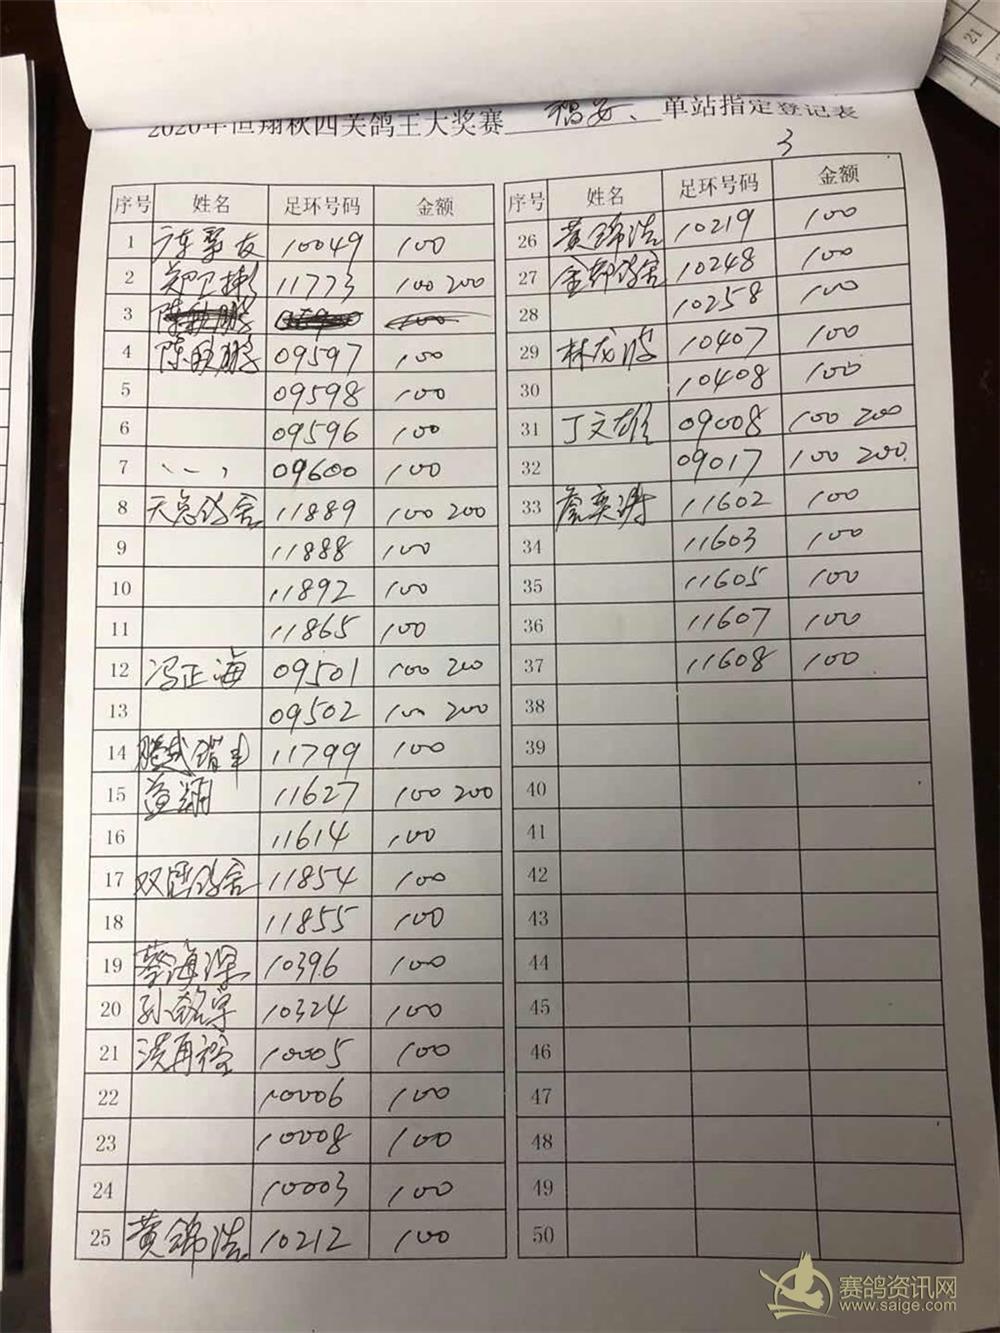 2020年恒翔秋四关鸽王大奖赛 福安、 单站指定登记表
3
序号 姓名 足环号码 金额
1 10049 100
2 郑卫彬 11773 100 200
3 陈秋鹏
4 陈秋鹏 09597 100
5 09598 100
6 09596 100
7 09600 100
8 天总鸽舍 11889 100 200
9 11888 100
10 11892 100
11 11865 100
12 冯正海 09501 100 200
13 09502 100 200
14 11799 100
15 黄翔 11627 100 200
16 11614 100
17 鸽舍 11854 100
18 11855 100
19 蔡海深 10396 100
20 孙铭宇 10324 100
21 洪再裕 10005 100
22 10006 100
23 10008 100
24 10003 100
25 黄锦浩 10212 100
序号 姓名 足环号码 金额
26 黄锦浩 10219 100
27 金邦鸽舍 10248 100
28 10258 100
29 林茂波 10407 100
30 10408 100
31 丁文雄 09008 100 200
32 09017 100 200
33 詹奕 11602 100
34 11603 100
35 11605 100
36 11607 100
37 11608 100
38
39
40
41
42
43
44
45
46
47
48
49
50
21
赛鸽资讯网
www.saige.com